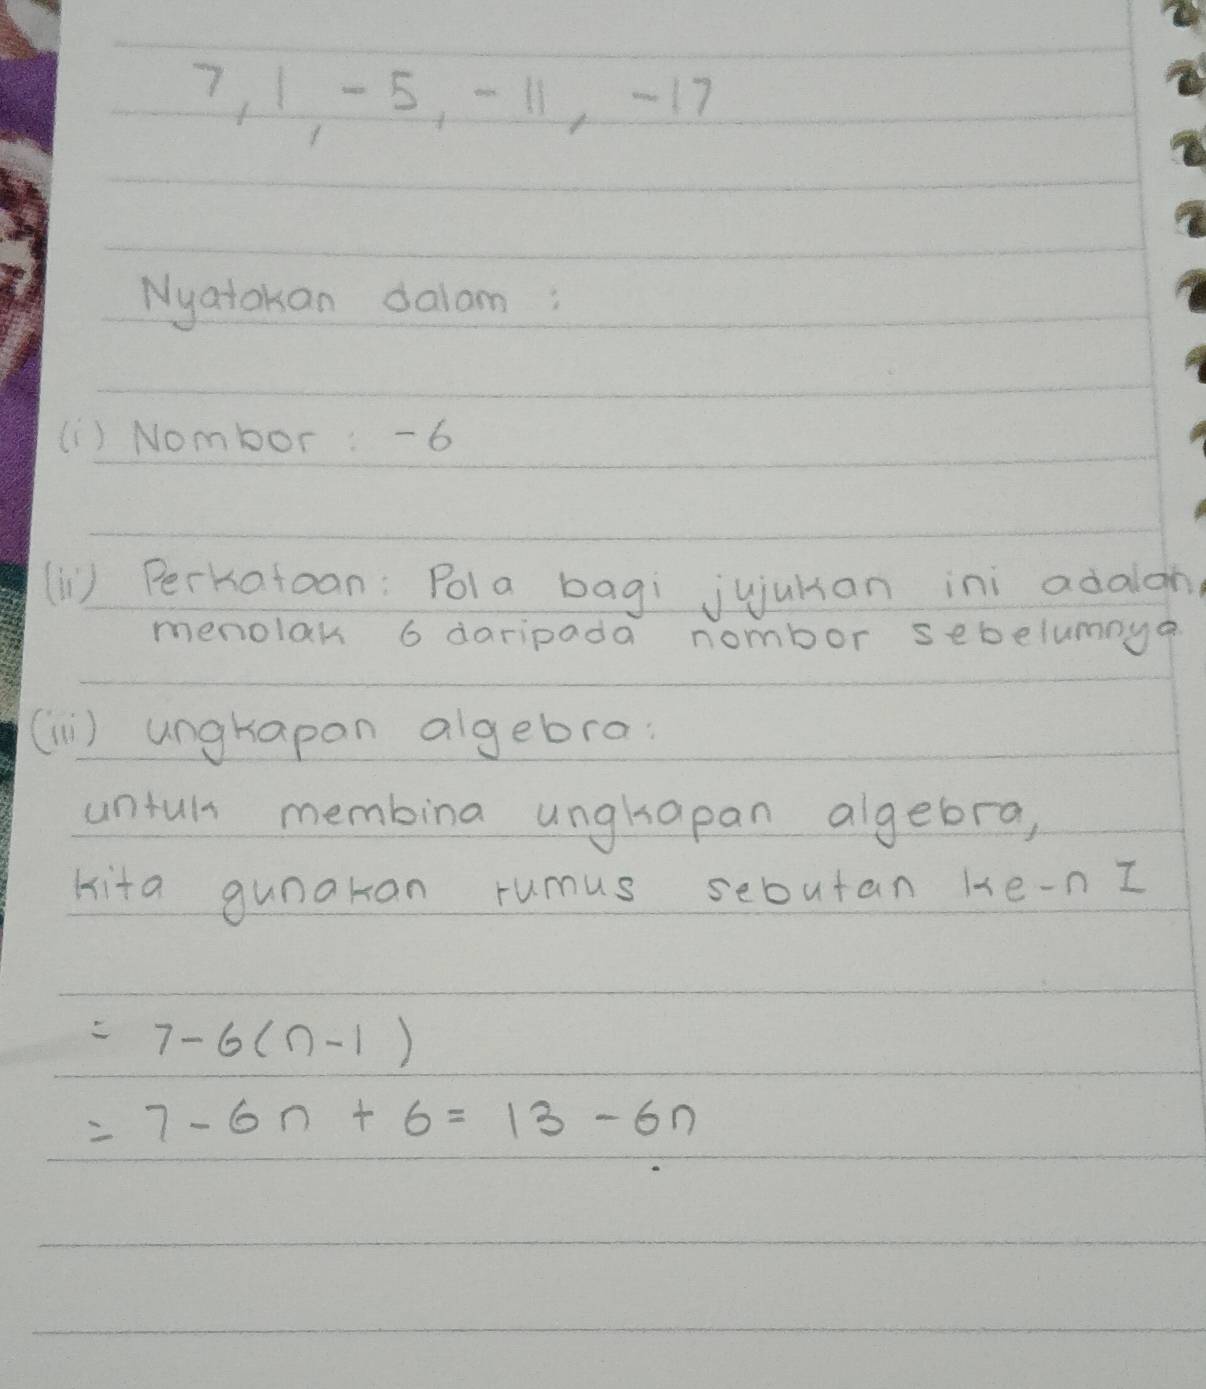 7, 1, -5, -11, -17
Nyatakan dalam :
(i) Nombor : -6
(ii) Perkataan : Pola bagi jujukan ini adalah
menolak 6 daripada nombor sebelumnya
(iii) ungkapan algebra :
untuk membina ungkapan algebra,
kita gunakan rumus sebutan ke-n I
= 7-6(n-1)
= 7-6n + 6 = 13 - 6n